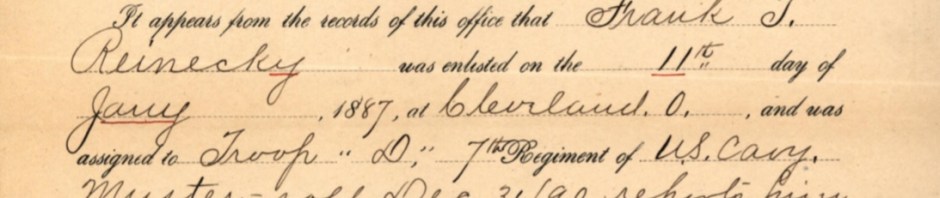 It appears from the records of this office that Frank T.
Reinecky was enlisted on the 11th day of
Jany, 1887, at Cleveland. O., and was
assigned to Troop "D," 7th Regiment of U.S. Cavy.
Muster-roll Dec 31/90 reports him